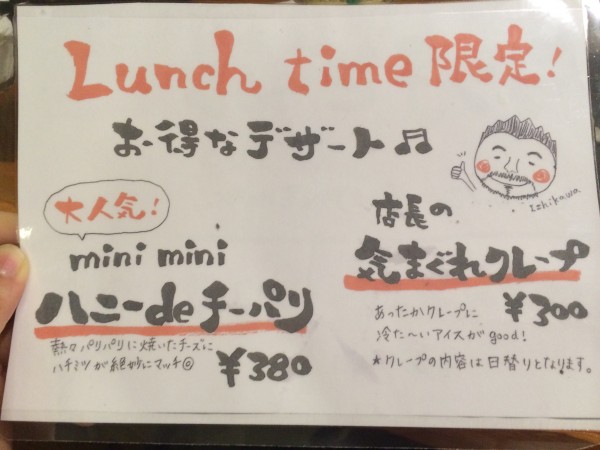 Lunch time 限定!
お得なデザート♬
大人気!
mini mini
ハニーdeチーパリ
熱々パリパリに焼いたチーズに
ハチミツが絶妙にマッチ◎
¥380
Ishikawa
店長の
気まぐれクレープ
¥300
あったかクレープに
冷た〜いアイスがgood!
*クレープの内容は日替りとなります。